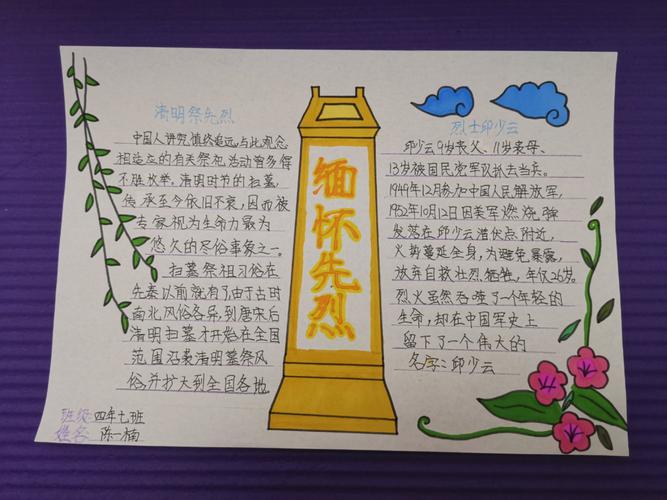 清明祭先烈
中国人讲究慎终追远,与此观念
相适应的有关祭祀活动曾多得
不胜枚举。清明时节的扫墓,
传承至今依旧不衰,因而被
专家视为生命力最为
悠久的尽俗事象之一。
扫墓祭祖习俗在
先秦以前就有了,由于古时
南北风俗各异,到唐宋后
清明扫墓才开始在全国
范围沿袭清明墓祭风
俗,并扩大到全国各地
班级:四年七班
姓名: 陈一楠
缅怀先烈
烈士邱少云
邱少云9岁丧父、11岁丧母、
13岁被国民党军队抓去当兵。
1949年12月参加中国人民解放军,
1952年10月12日因美军燃烧弹
发落在邱少云潜伏点附近,
火势蔓延全身,为避免暴露,
放弃自救壮烈牺牲,年仅26岁。
烈火虽然吞噬了一个年轻的
生命,却在中国军史上
留下了一个伟大的
名字:邱少云